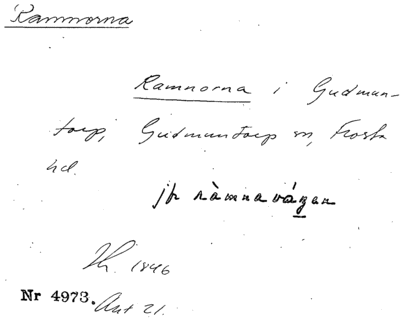 Ramnorna
Ramnorna i Gudmun-
torp, Gudmuntorp sn, Frosta
hd.
jfr ràmnavágen
1846
Nr 4973. Ant 21.